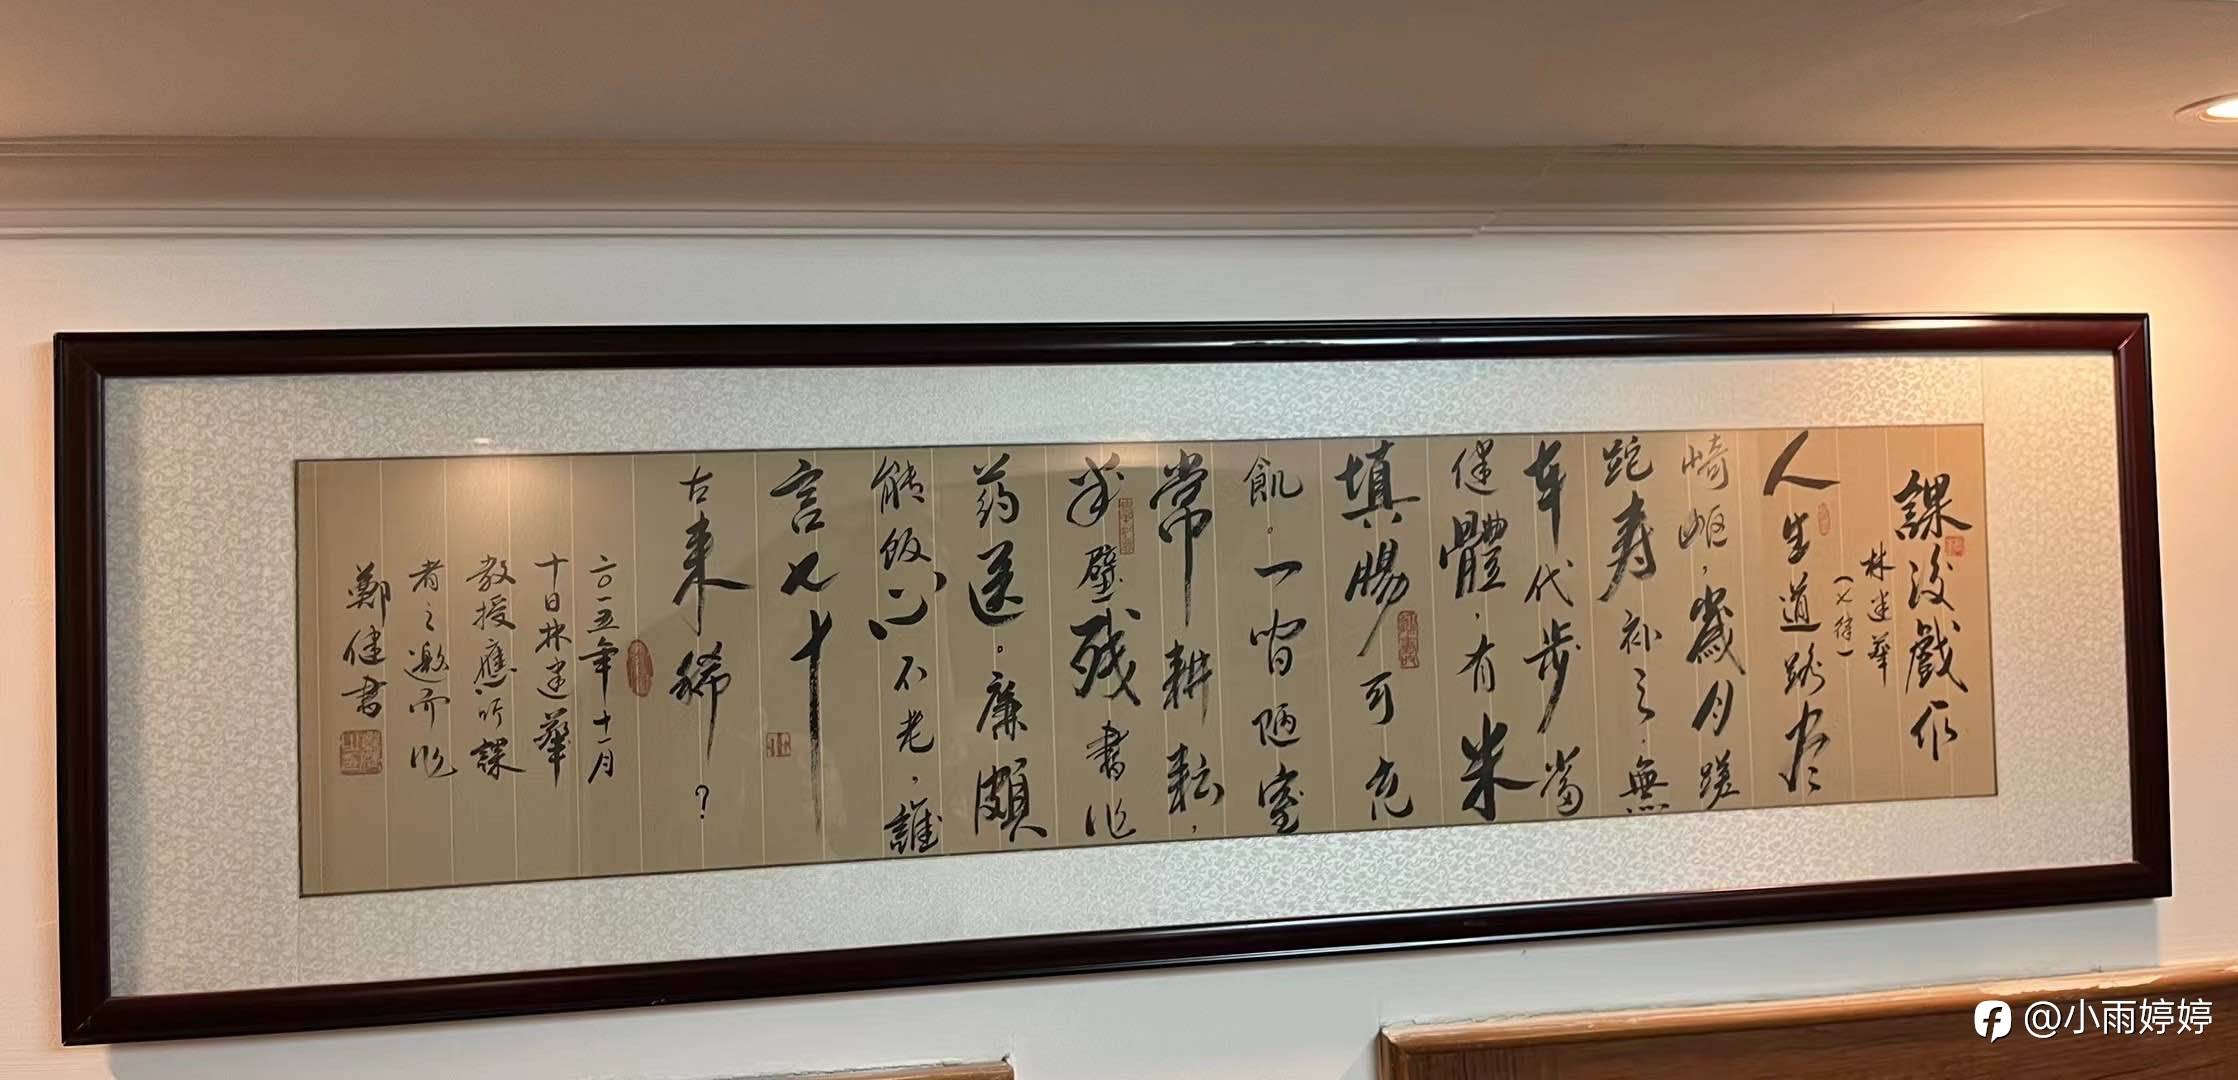 課後戲作
林建華
（七律）
人生道路有
崎岖，歲月蹉
跎寿补之。無
车代步當
健體，有米
填腸可充
飢。一间陋室
常耕耘，
半壁残書作
药送。廉頗
能饭心不老，誰
言七十
古来稀？
二〇一五年十一月
十日林建華
教授應听課
者之邀而作
鄭健書
@小雨婷婷